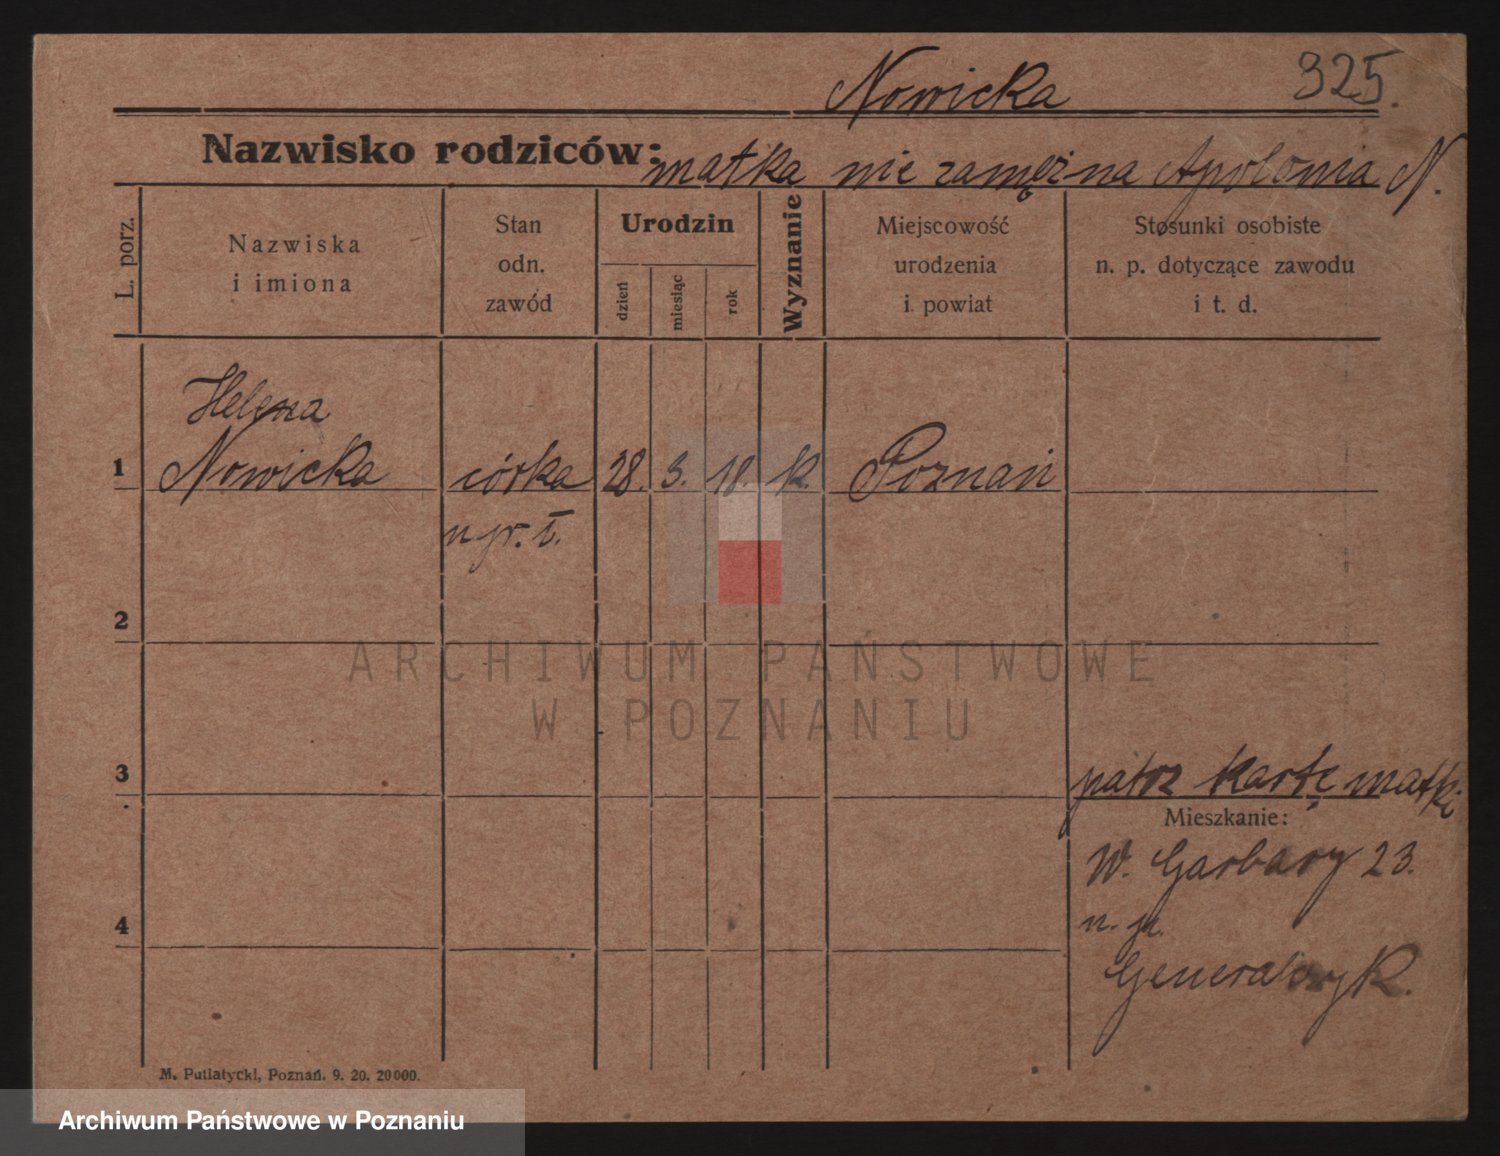 Nowicka
325.
Nazwisko rodziców: matka nie zamężna Apolonia N.
L. porz.
Nazwiska
i imiona
Stan
odn.
zawód
Urodzin
dzień
miesiąc
rok
Wyznanie
Miejscowość
urodzenia
i powiat
Stosunki osobiste
n. p. dotyczące zawodu
i t. d.
Helena
1 Nowicka córka 28. 3. 18. k. Poznań
2
ARCHIWUM PAŃSTWOWE
W POZNANIU
3
patrz kartę matki
Mieszkanie:
W. Garbary 23.
4
n. p.
M. Putiatycki, Poznań. 9. 20. 20000.
Archiwum Państwowe w Poznaniu